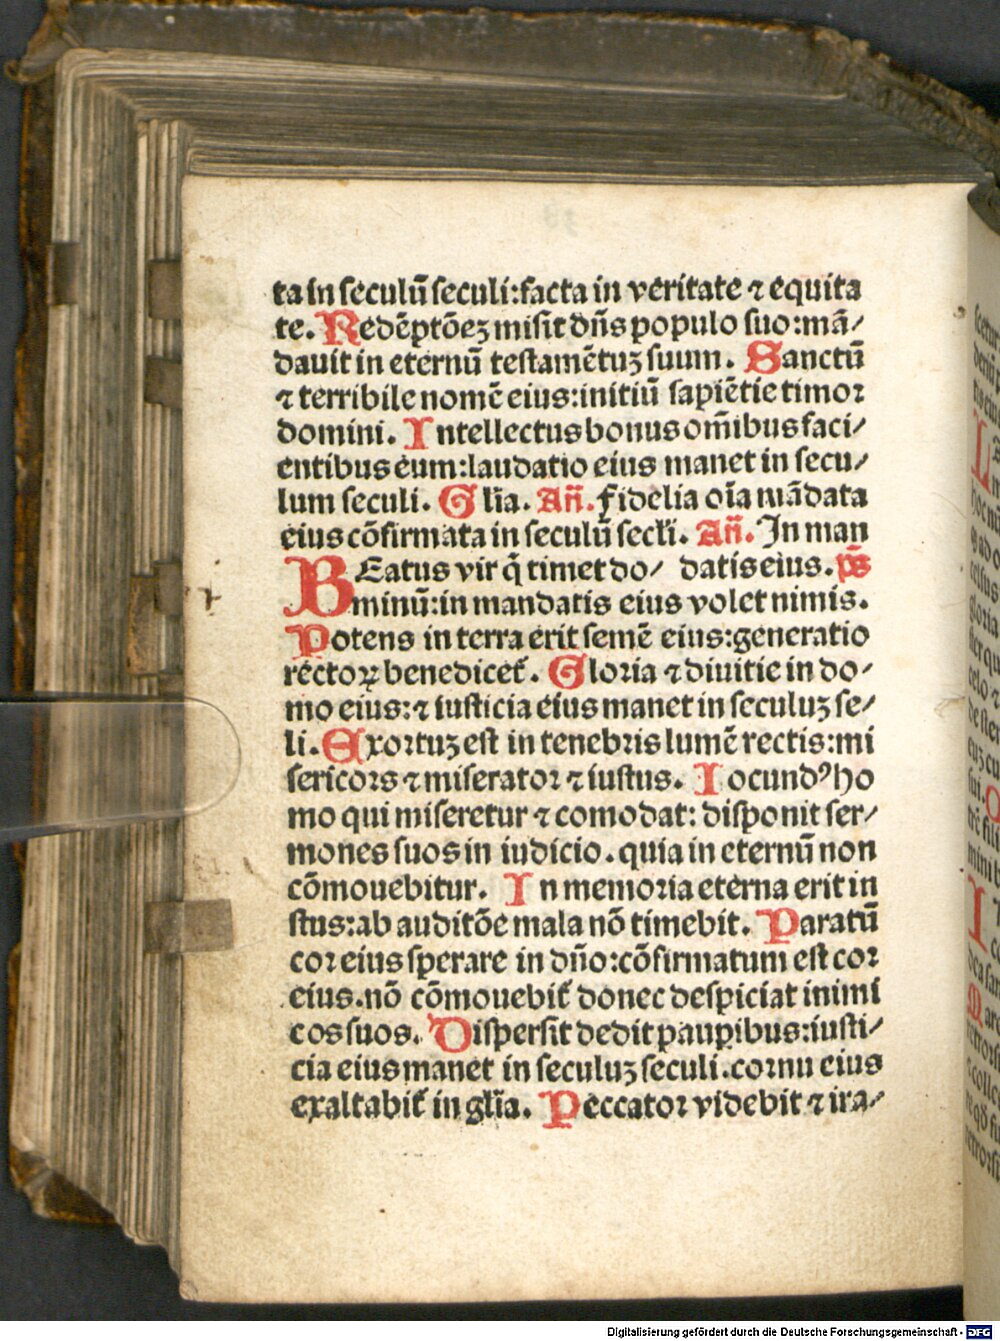 ta in seculū seculi:facta in veritate ⁊ equita
te. Redēptōeꝫ misit dn̄s populo suo:mā/
dauit in eternū testamētuꝫ suum. Sanctū
⁊ terribile nomē eius:initiū sapiētie timor
domini. Intellectus bonus om̄ibus faci/
entibus eum:laudatio eius manet in secu/
lum seculi. Gl̄ia. An̄. Fidelia oīa mādata
eius cōfirmata in seculū secl̄i. An̄. In man
BEatus vir q̄ timet do/ datis eius. ps̄
minū:in mandatis eius volet nimis.
Potens in terra erit semē eius:generatio
rectoꝝ benedicet᷑. Gloria ⁊ diuitie in do/
mo eius:⁊ iusticia eius manet in seculuꝫ se/
li. Exortuꝫ est in tenebris lumē rectis:mi
sericors ⁊ miserator ⁊ iustus. Iocundꝰ ho
mo qui miseretur ⁊ comodat: disponit ser/
mones suos in iudicio. quia in eternū non
cōmouebitur. In memoria eterna erit iu
stus:ab auditōe mala nō timebit. Paratū
cor eius sperare in dn̄o:cōfirmatum est cor
eius.nō cōmouebit᷑ donec despiciat inimi
cos suos. Dispersit dedit pauꝑibus:iusti/
cia eius manet in seculuꝫ seculi.cornu eius
exaltabit᷑ in gl̄ia. Peccator videbit ⁊ ira/
Digitalisierung gefördert durch die Deutsche Forschungsgemeinschaft - DFG